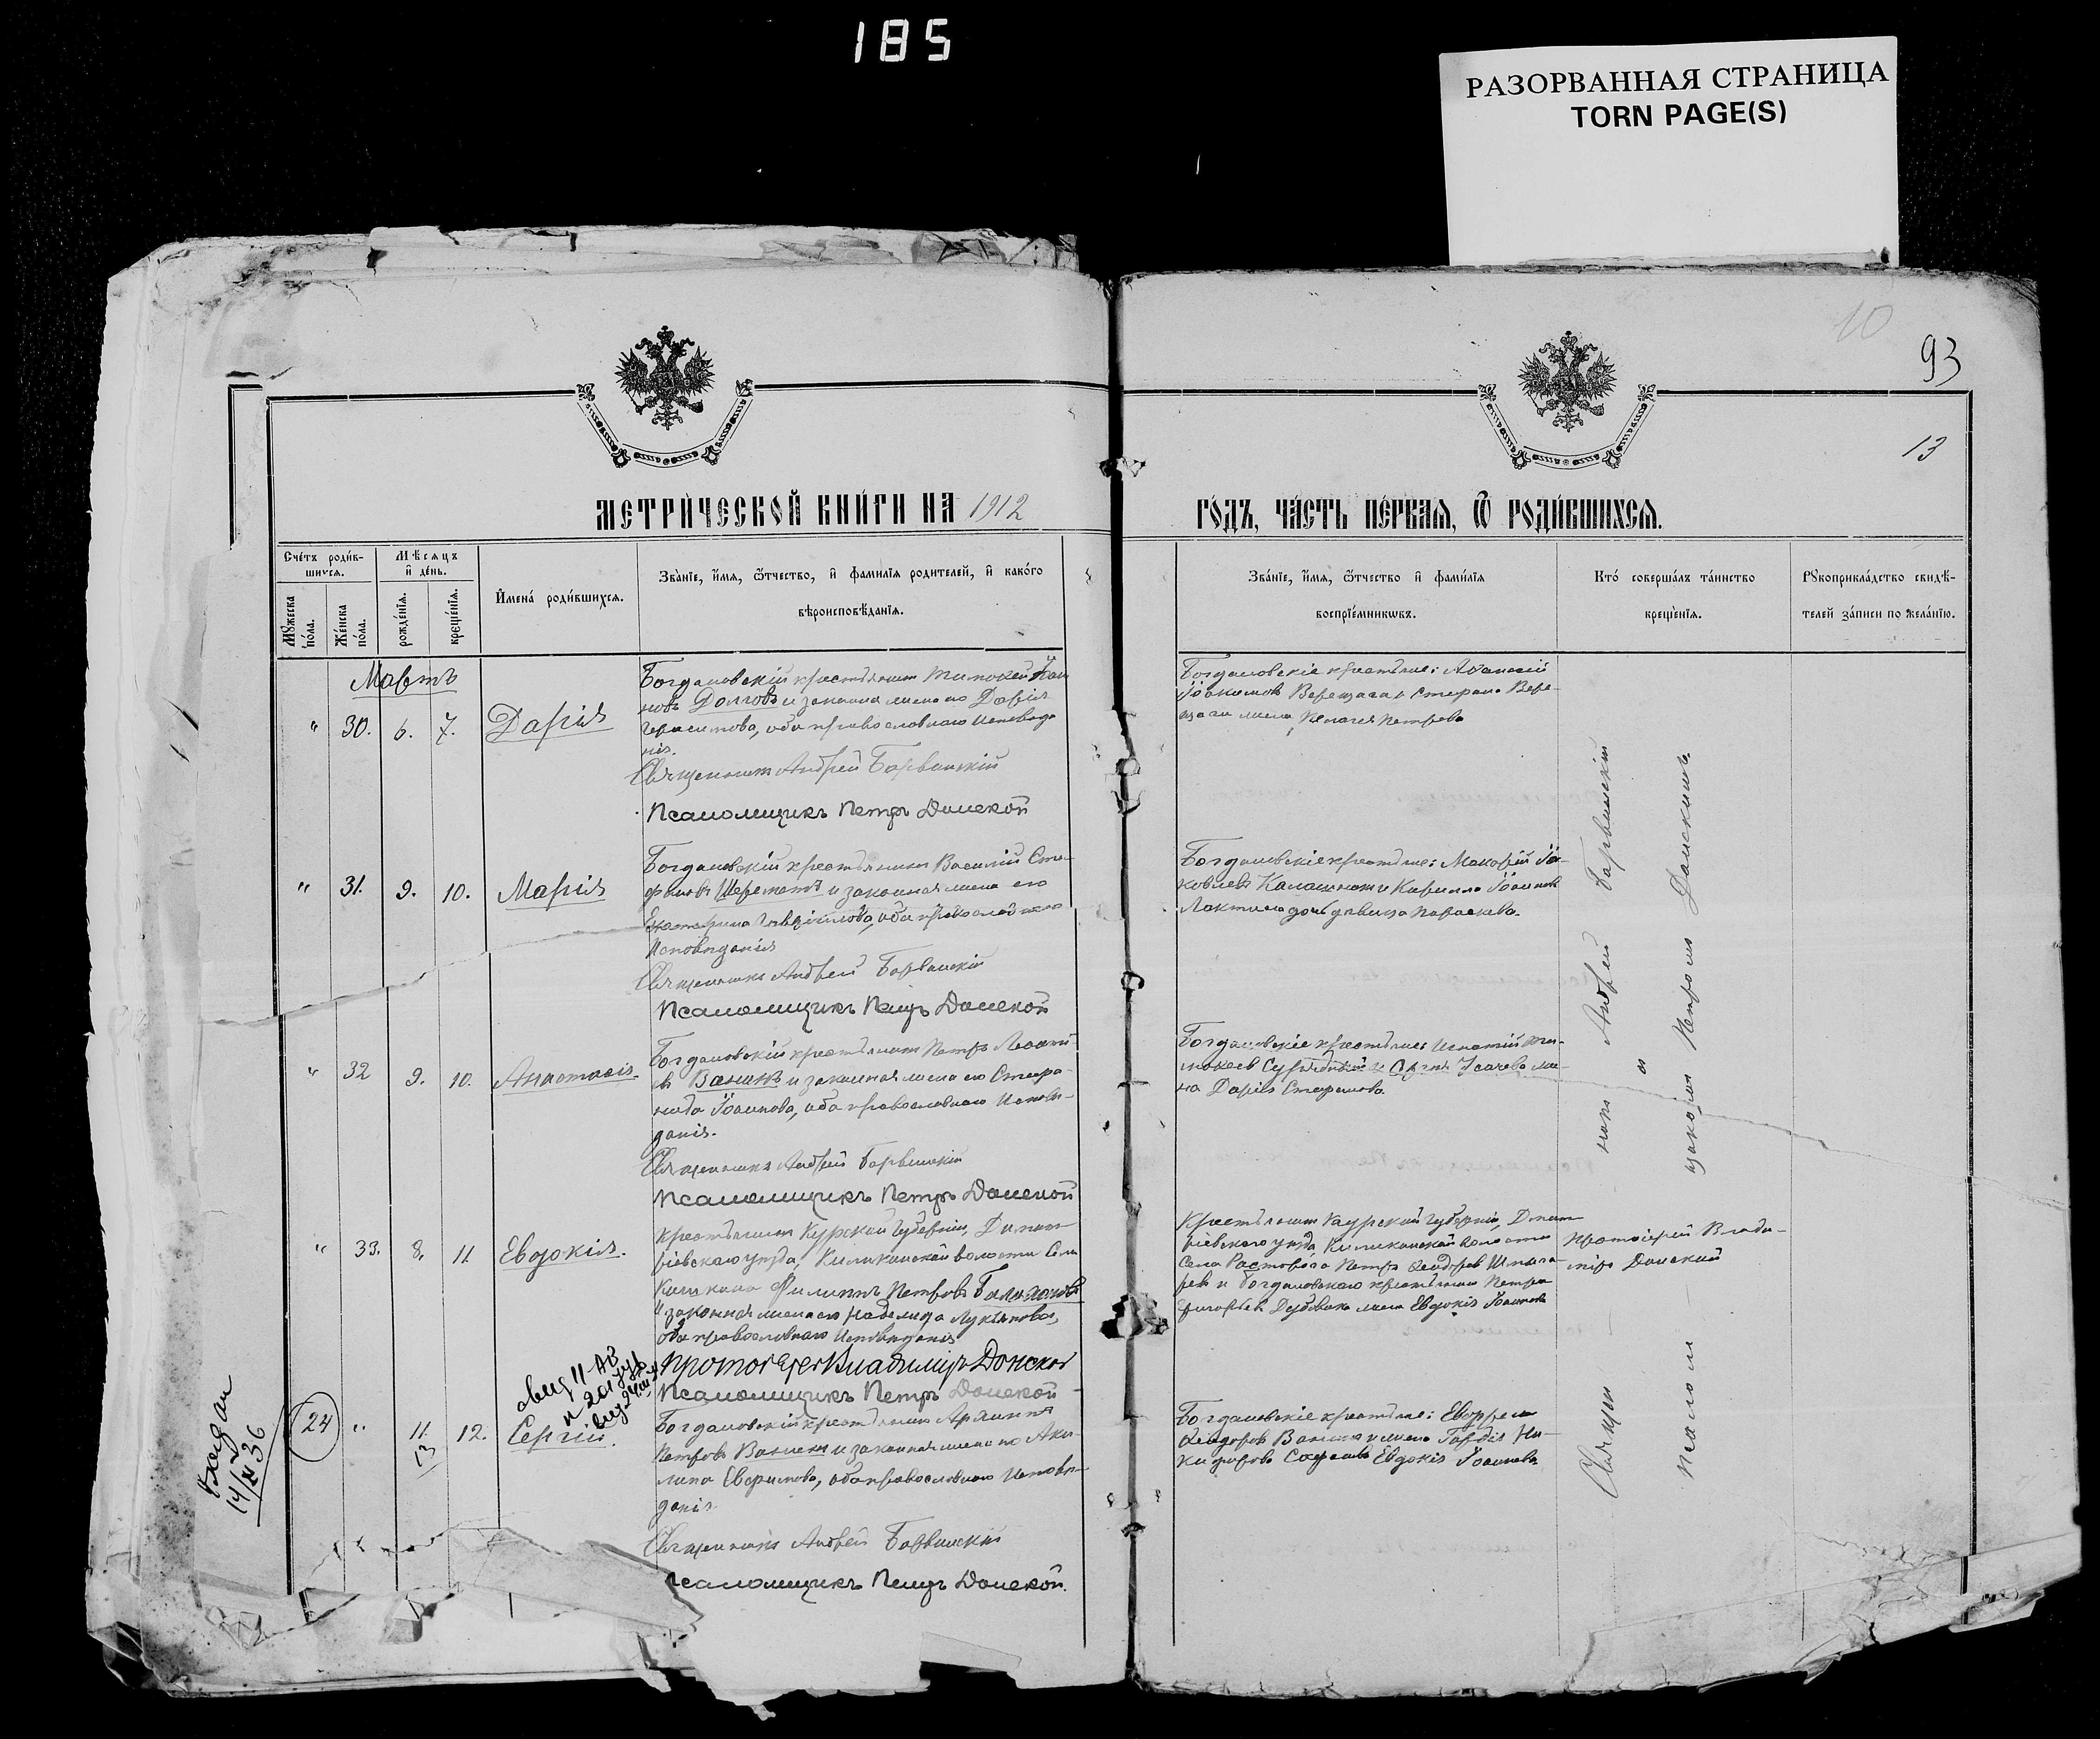 185
РАЗОРВАННАЯ СТРАНИЦА
TORN PAGE(S)
10
93
13
МЕТРИ́ЧЕСКОЙ КНИ́ГИ НА 1912
ГО́ДЪ, ЧА́СТЬ ПЕ́РВАЯ, Ѿ РОДИ́ВШИХСЯ.
Сче́тъ роди́в-
шихся.
Мѣ́сяцъ
и҆ де́нь.
И҆мена́ роди́вшихся.
Зва́нїе, и҆́мя, ѻ҆́тчество, и҆ фами́лїя роди́телей, и҆ како́го
вѣроисповѣ́данїя.
Мꙋ́жеска
по́ла.
Же́нска
по́ла.
рожде́нїя.
креще́нїя.
Зва́нїе, и҆́мя, ѻ҆́тчество и҆ фами́лїя
воспрїе́мникѡвъ.
Кто́ соверша́лъ та́инство
креще́нїя.
Рꙋкоприкла́дство свидѣ́-
телей за́писи по жела́нїю.
Мартъ
" 30. 6. 7. Дарія
Богдановскій крестьянинъ Тимофей Іоан
новъ Долговъ и законная жена его Дарія
Герасимова, оба православнаго исповѣда
нія.
Священникъ Андрей Барвинскій
Псаломщикъ Петръ Донской
Богдановскіе крестьяне: Аѳанасій
Іоакимовъ Верещага и Стефана Вере-
щаги жена Пелагея Петрова
" 31. 9. 10. Марія
Богдановскій крестьянинъ Василій Сте-
фановъ Шереметъ и законная жена его
Екатерина оба православнаго
исповѣданія
Священникъ Андрей Барвинскій
Псаломщикъ Петръ Донской
Богдановскіе крестьяне: Макарій Іа-
ковлевъ Калашникъ и Кирилла Іоаннов
дочь дѣвица Параскева.
" 32 9. 10. Анастасія
Богдановскій крестьянинъ Петръ Леонті-
евъ Ванинъ и законная жена его Стефа-
нида Іоаннова, оба православнаго исповѣ-
данія.
Священникъ Андрей Барвинскій
Псаломщикъ Петръ Донской
Богдановскіе крестьяне: Игнатій Ти-
мофеевъ и Сергея Усачева же-
на Дарія Стефанова.
" 33. 8. 11. Евдокія.
Крестьянинъ Курской губерніи, Дмит-
ріевскаго уѣзда, Киликинской волости Села
Киликина Филиппъ Петровъ
и законная жена его Надежда Лукьянова,
оба православнаго исповѣданія
Протоіерей Владиміръ Донской
Псаломщикъ Петръ Донской
Крестьянинъ Курской губерніи, Дмит
ріевскаго уѣзда Киликинской волости
Села Петръ Ѳеодоровъ
и Богдановскаго крестьянина Петра
Григорьева жена Евдокія Іоаннова
Протоіерей Влади-
міръ Донской
24 " 11. 12. Сергій.
13
Богдановскій крестьянинъ
Петровъ Ванинъ и законная жена его Аки-
лина Евфимова, оба православнаго исповѣ-
данія
Священникъ Андрей Барвинскій
Псаломщикъ Петръ Донской.
Богдановскіе крестьяне:
Ѳеодоровъ Ванинъ и жена Гордія Ни-
кифорова Евдокія Іоаннова
выдан
Священникъ Андрей Барвинскій
и
псаломщикомъ Петромъ Донскимъ